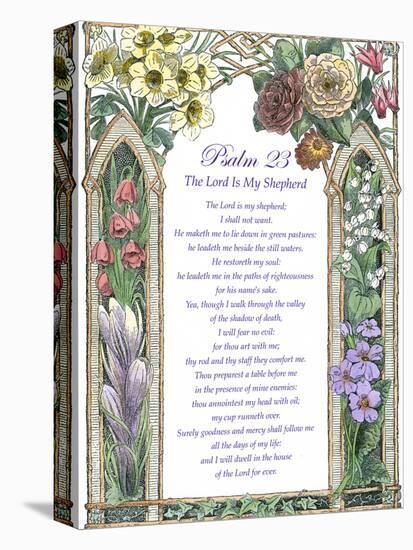 Psalm 23
The Lord Is My Shepherd
The Lord is my shepherd;
I shall not want.
He maketh me to lie down in green pastures:
he leadeth me beside the still waters.
He restoreth my soul:
he leadeth me in the paths of righteousness
for his name's sake.
Yea, though I walk through the valley
of the shadow of death,
I will fear no evil:
for thou art with me;
thy rod and thy staff they comfort me.
Thou preparest a table before me
in the presence of mine enemies:
thou annointest my head with oil;
my cup runneth over.
Surely goodness and mercy shall follow me
all the days of my life:
and I will dwell in the house
of the Lord for ever.